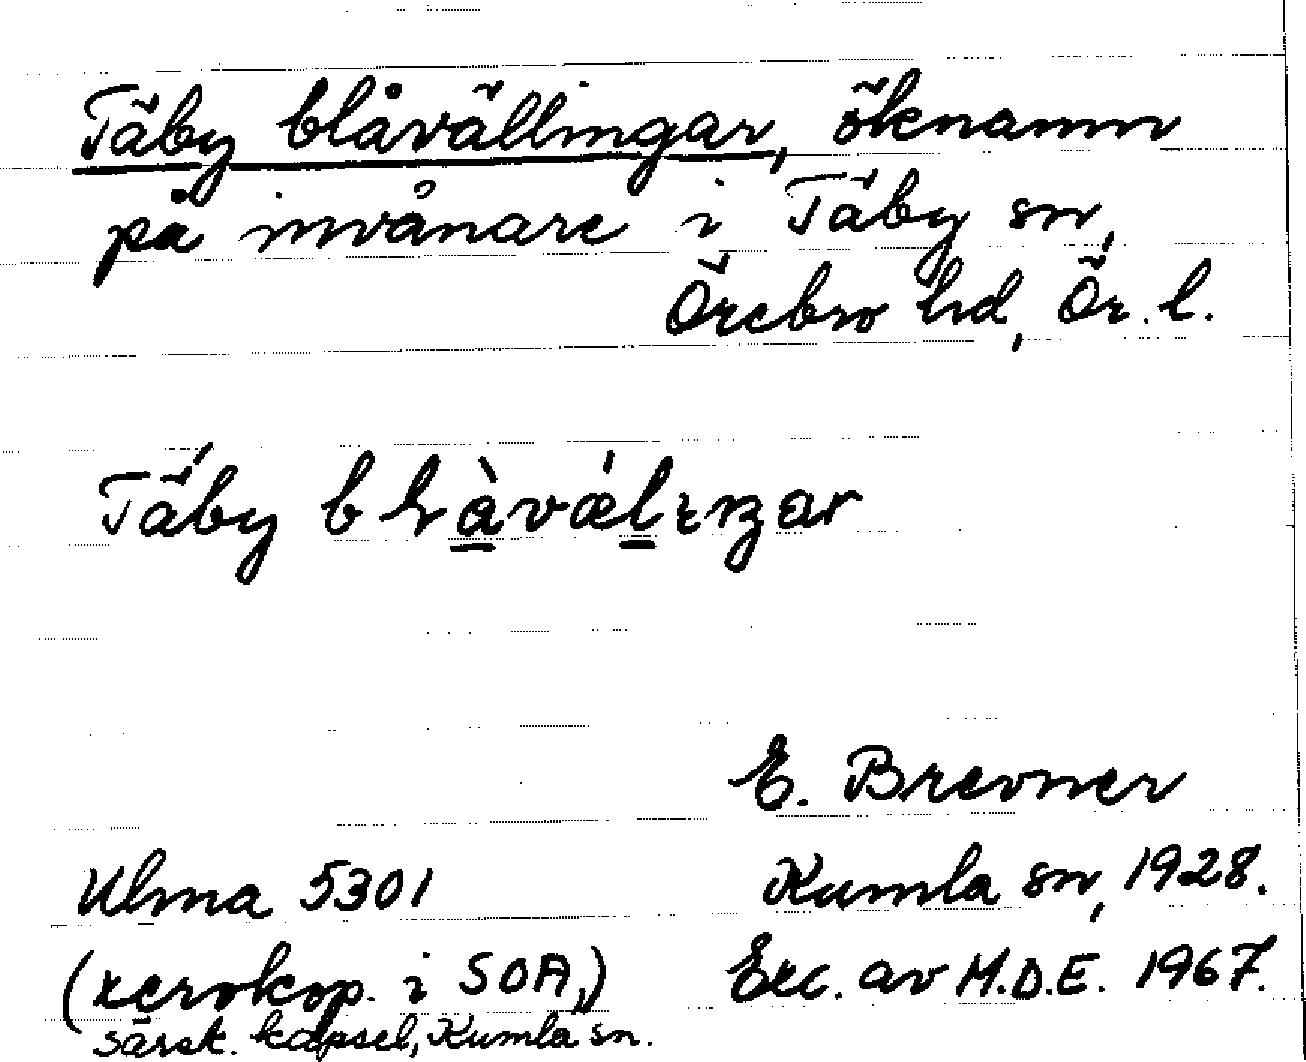 Täby blåvällingar, öknamn
på invånare i Täby sn,
Örebro hd, Ör. l.
Täby
E. Brevner
Ulma 5301
Kumla sn, 1928.
(xerokop. i SOA,)
Exc. av M.D.E. 1967.
särsk. kapsel, Kumla sn.